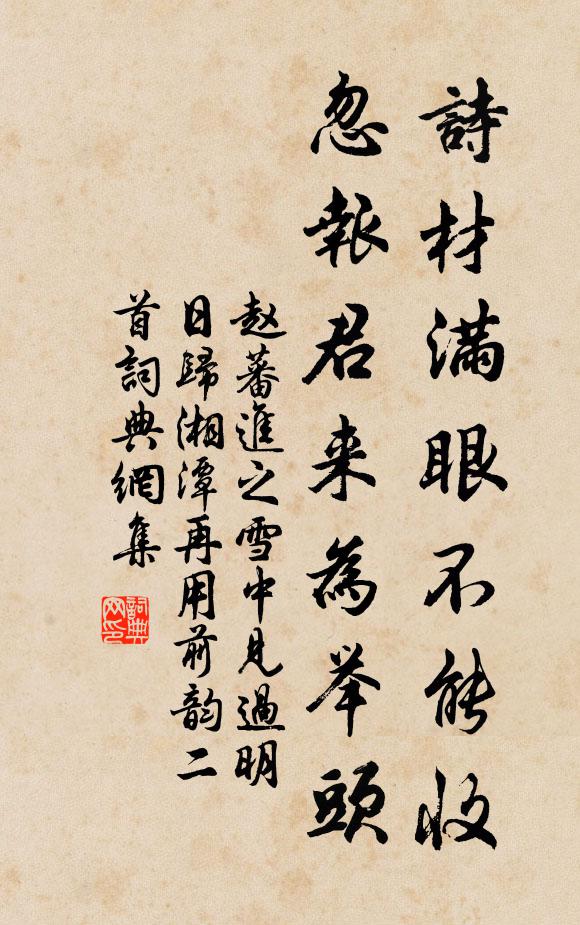 詩材满眼不能收
忽報君来為举頭
赵蕃進之雪中見過明
日歸湘潭再用前韵二
首詞典網集
詞典
网印